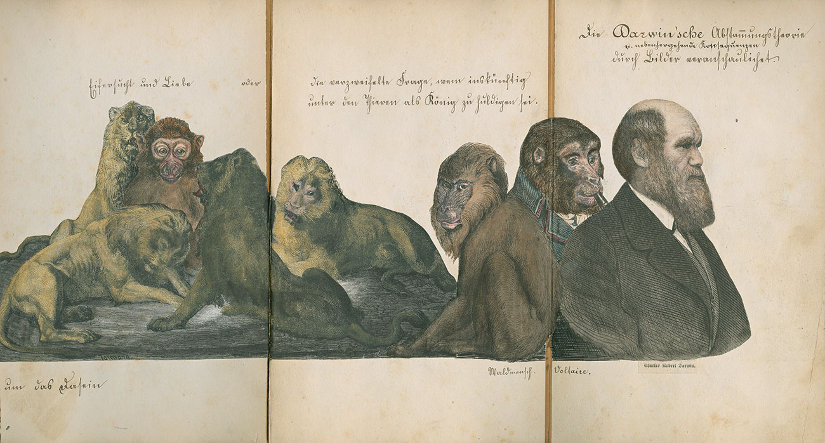 Die Darwin'sche Abstam̄ungstheorie
u. nebenhergehende Konsequenzen
durch Bilder veranschaulichet.
Eifersucht und Liebe oder die verzweifelte Frage, wem inskünftig
unter den Thieren als König zu huldigen sei.
um das Dasein
Waldmensch. Voltaire.
Charles Robert Darwin.